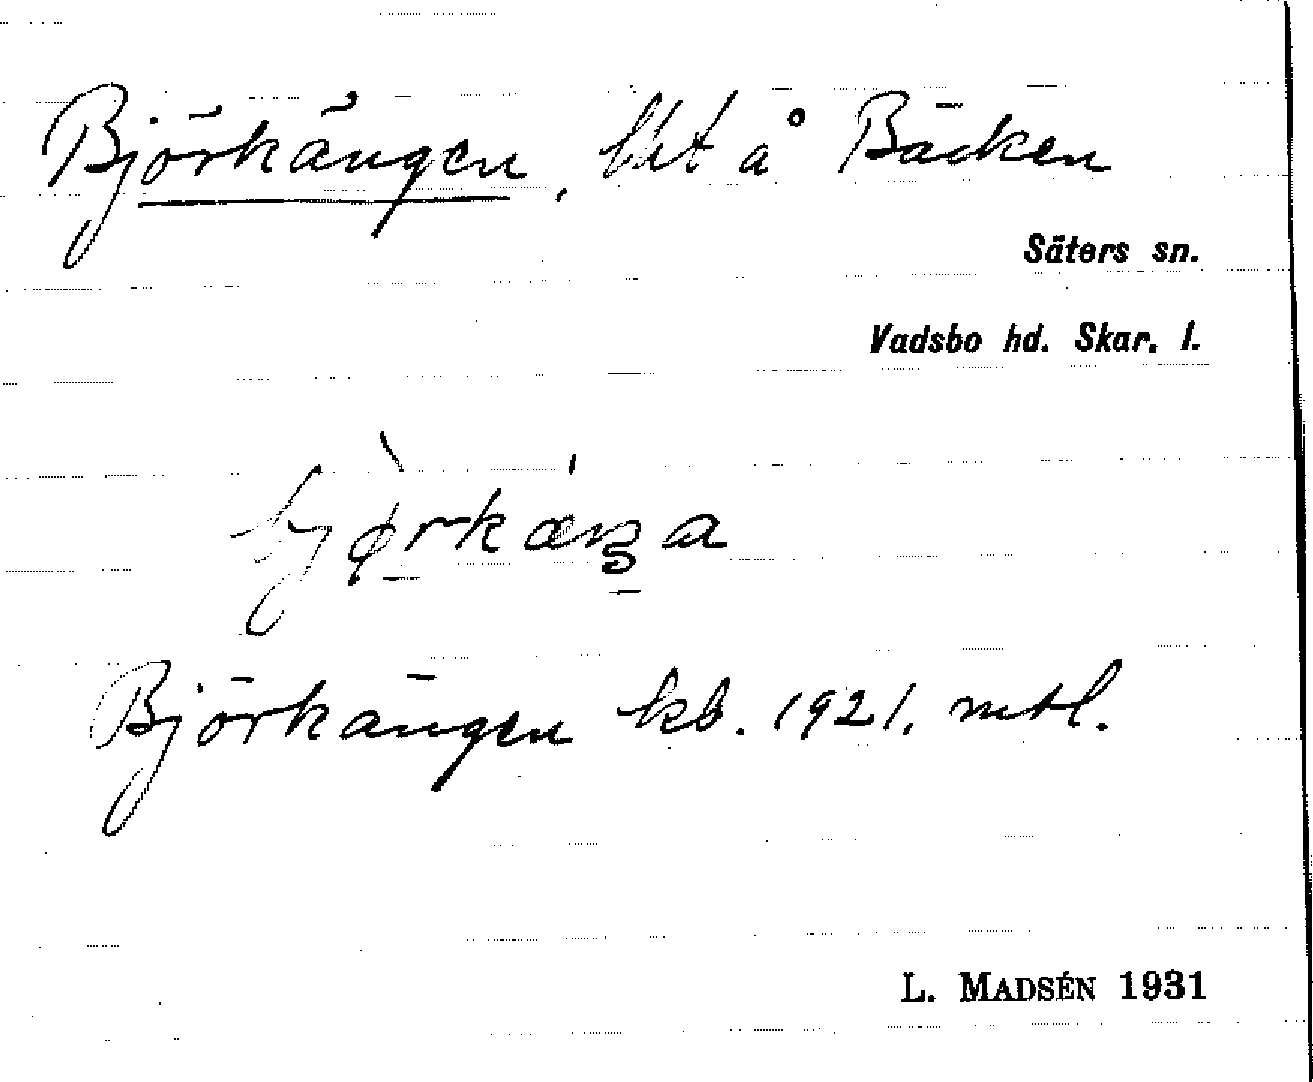 Björkängen, lht å Bäcken
Säters sn.
Vadsbo hd. Skar. l.
Björkängen kb. 1921. mtl.
L. MADSÉN 1931